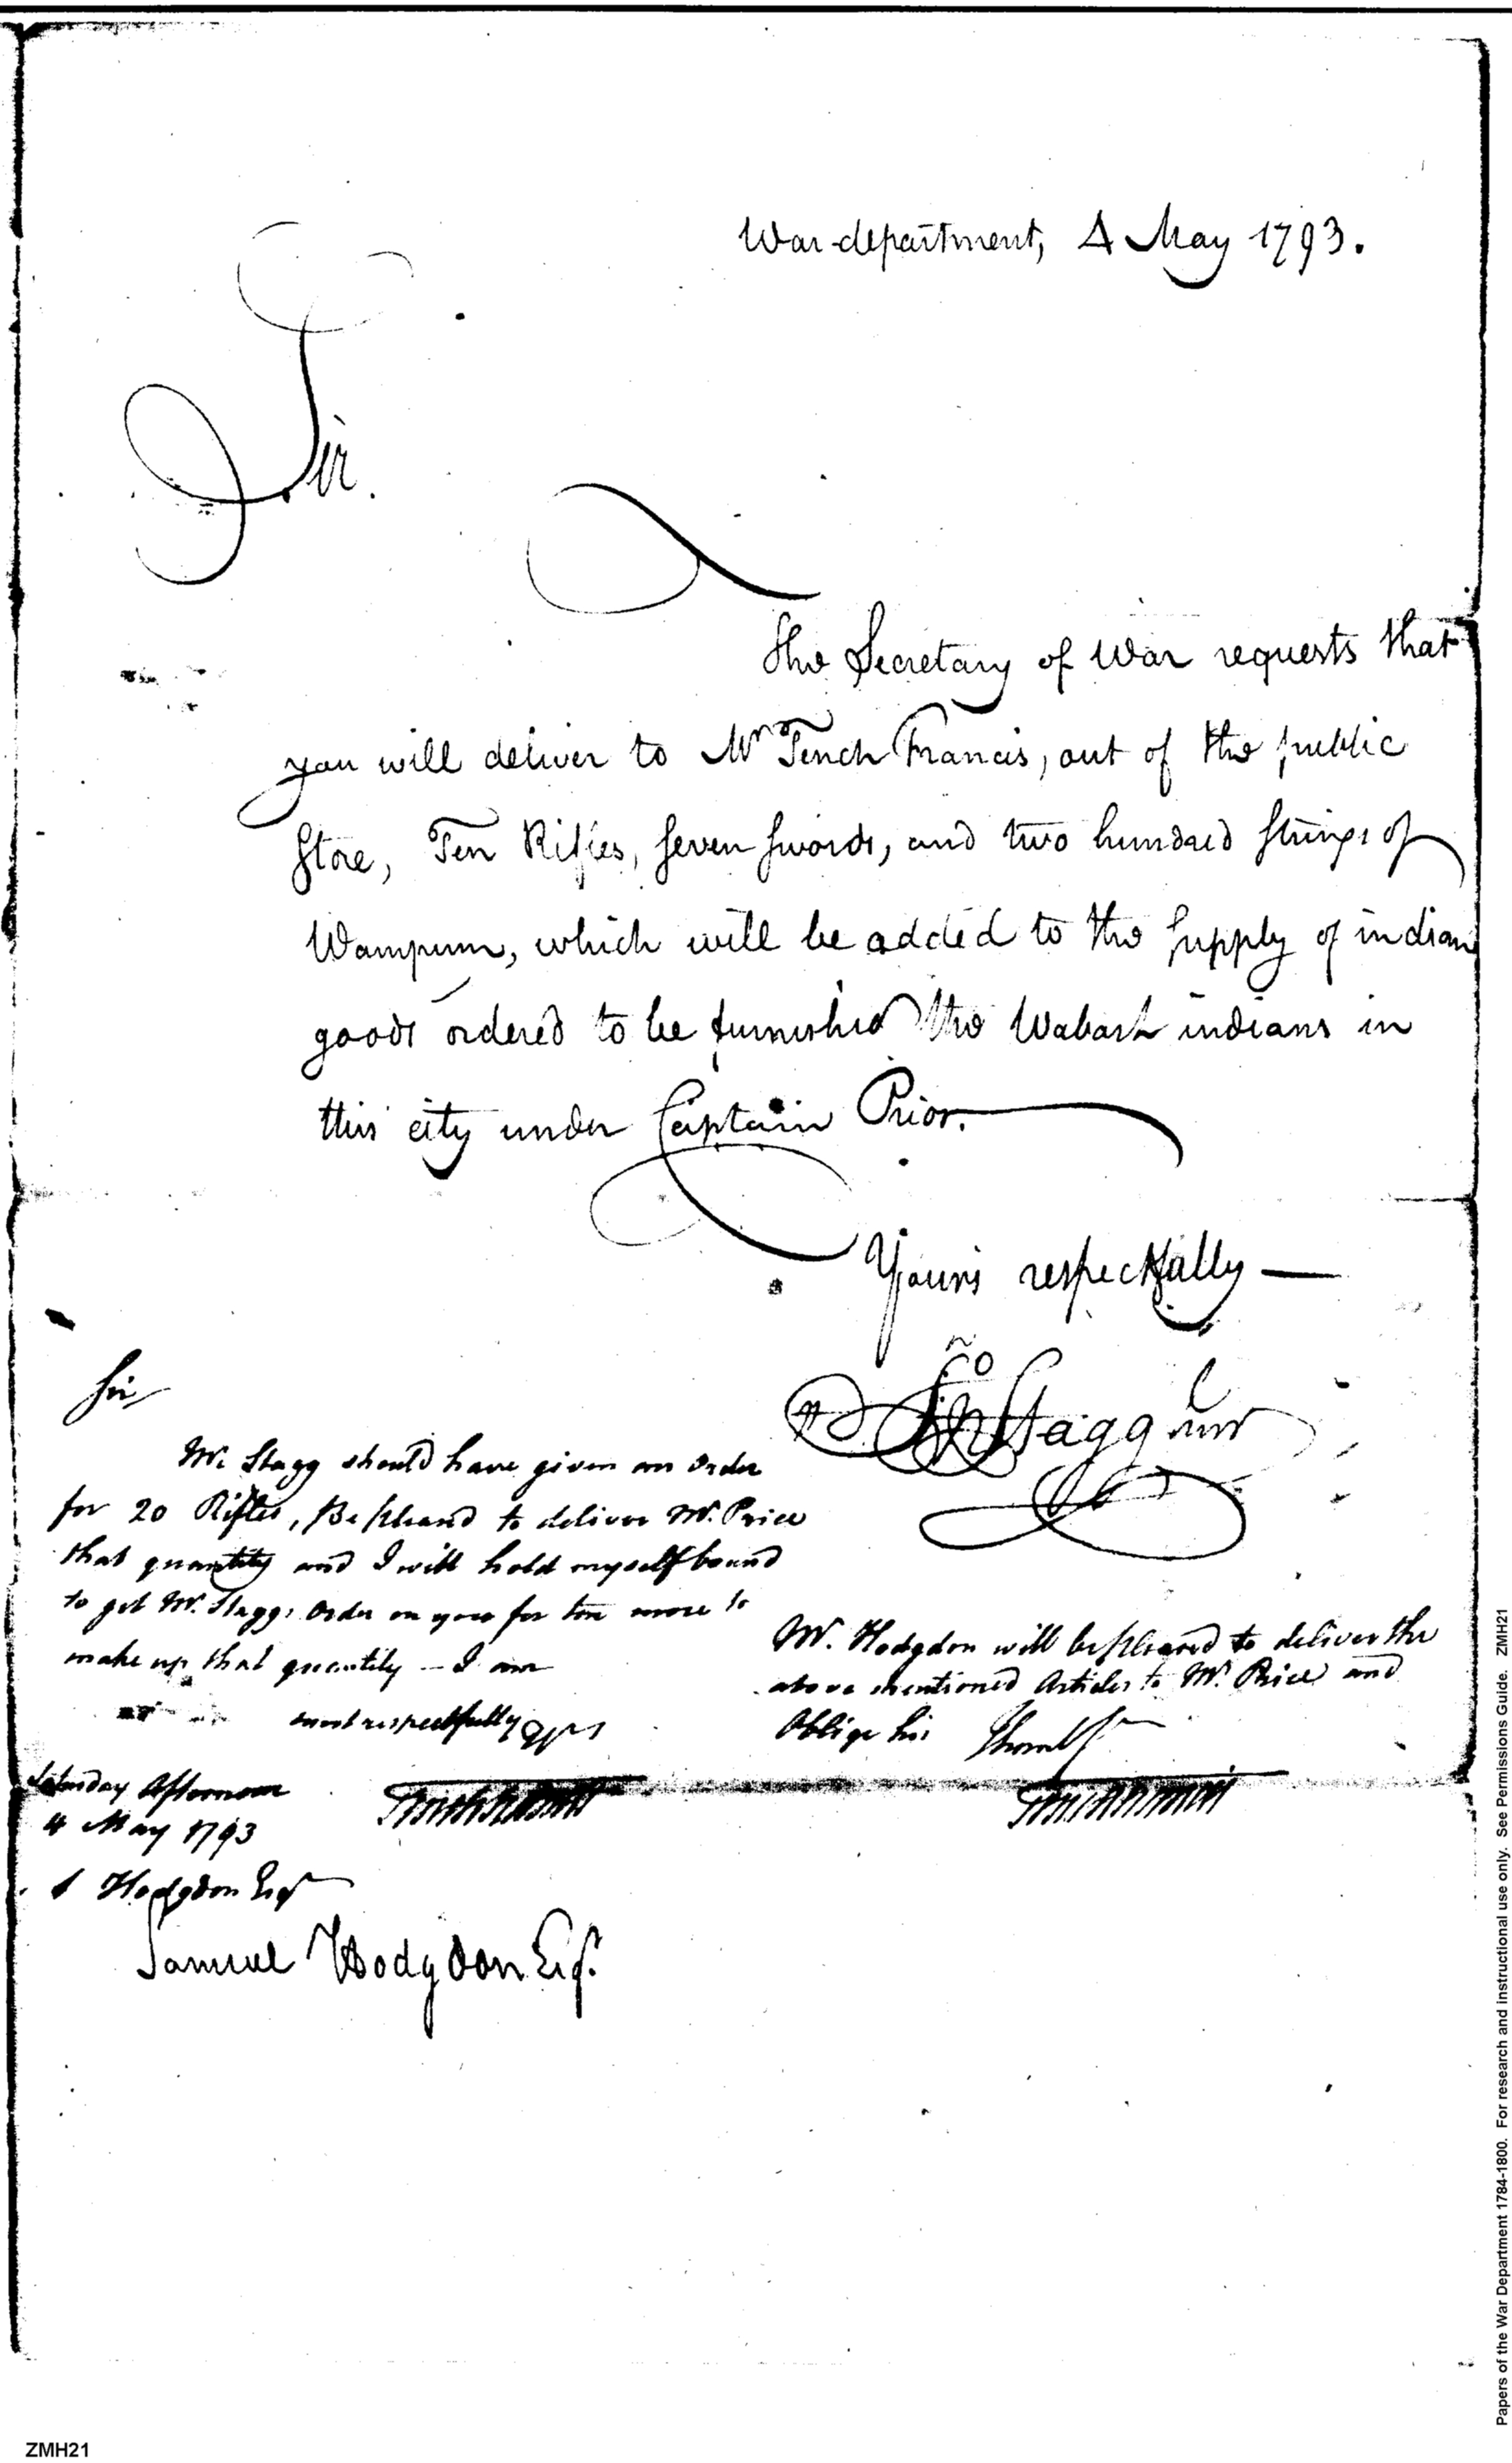 War department, 4 May 1793.
Sir.
The Secretary of War requests that
you will deliver to Mr Tench Francis, out of the public
Store, Ten Rifles, seven swords, and two hundred strings of
Wampum, which will be added to the supply of indian
goods ordered to be furnished the Wabash indians in
this city under Captain Prior.
Yours respectfully —
Jno Stagg Junr
Sir
Mr Stagg should have given an order
for 20 Rifles, Be pleased to deliver Mr. Price
that quantity and I will hold myself bound
to get Mr. Staggs order on you for ten more to
make up that quantity – I am
most respectfully yrs
Saturday Afternoon
4 May 1793
S Hodgdon Esqr
Mr. Hodgdon will be pleased to deliver the
above mentioned Articles to Mr. Price and
Oblige his
Samuel Hodgdon Esqr.
Papers of the War Department 1784-1800. For research and instructional use only. See Permissions Guide. ZMH21
ZMH21